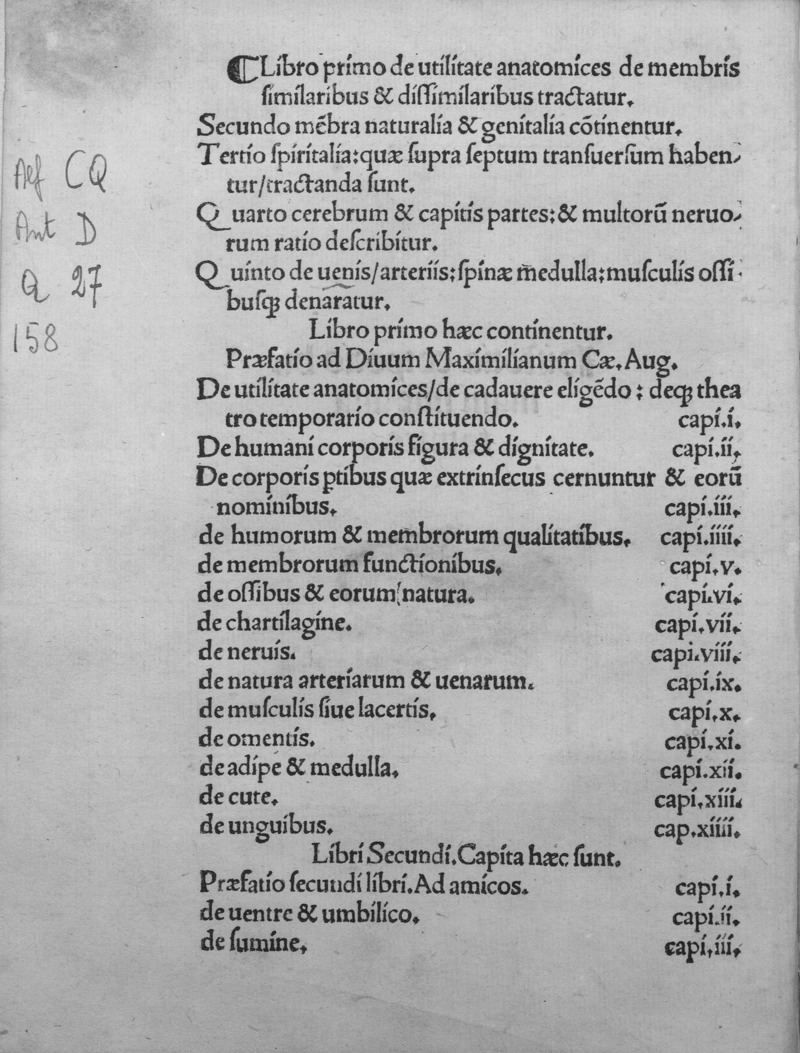 Aef CQ
Ant D
Q 27
158
⸿Libro primo de utilitate anatomices de membris
ſimilaribus & diſſimilaribus tractatur.
Secundo mēbra naturalia & genitalia cōtinentur.
Tertio ſpiritalia: quæ ſupra ſeptum tranſuerſum haben-
tur/tractanda ſunt.
Quarto cerebrum & capitis partes: & multorū neruo-
rum ratio deſcribitur.
Quinto de uenis/arteriis: ſpinæ medulla: muſculis oſſi-
buſqꝫ denaratur.
Libro primo hæc continentur.
Præfatio ad Diuum Maximilianum Cæ. Aug.
De utilitate anatomices/de cadauere eligēdo: deqꝫ thea
tro temporario conſtituendo. capi.i.
De humani corporis figura & dignitate. capi.ii.
De corporis ꝑtibus quæ extrinſecus cernuntur & eorū
nominibus. capi.iii.
de humorum & membrorum qualitatibus. capi.iiii.
de membrorum functionibus. capi.v.
de oſſibus & eorum natura. capi.vi.
de chartilagine. capi.vii.
de neruis. capi.viii.
de natura arteriarum & uenarum. capi.ix.
de muſculis ſiue lacertis. capi.x.
de omentis. capi.xi.
de adipe & medulla. capi.xii.
de cute. capi.xiii.
de unguibus. cap.xiiii.
Libri Secundi. Capita hæc ſunt.
Præfatio ſecundi libri. Ad amicos. capi.i.
de uentre & umbilico. capi.ii.
de ſumine. capi.iii.